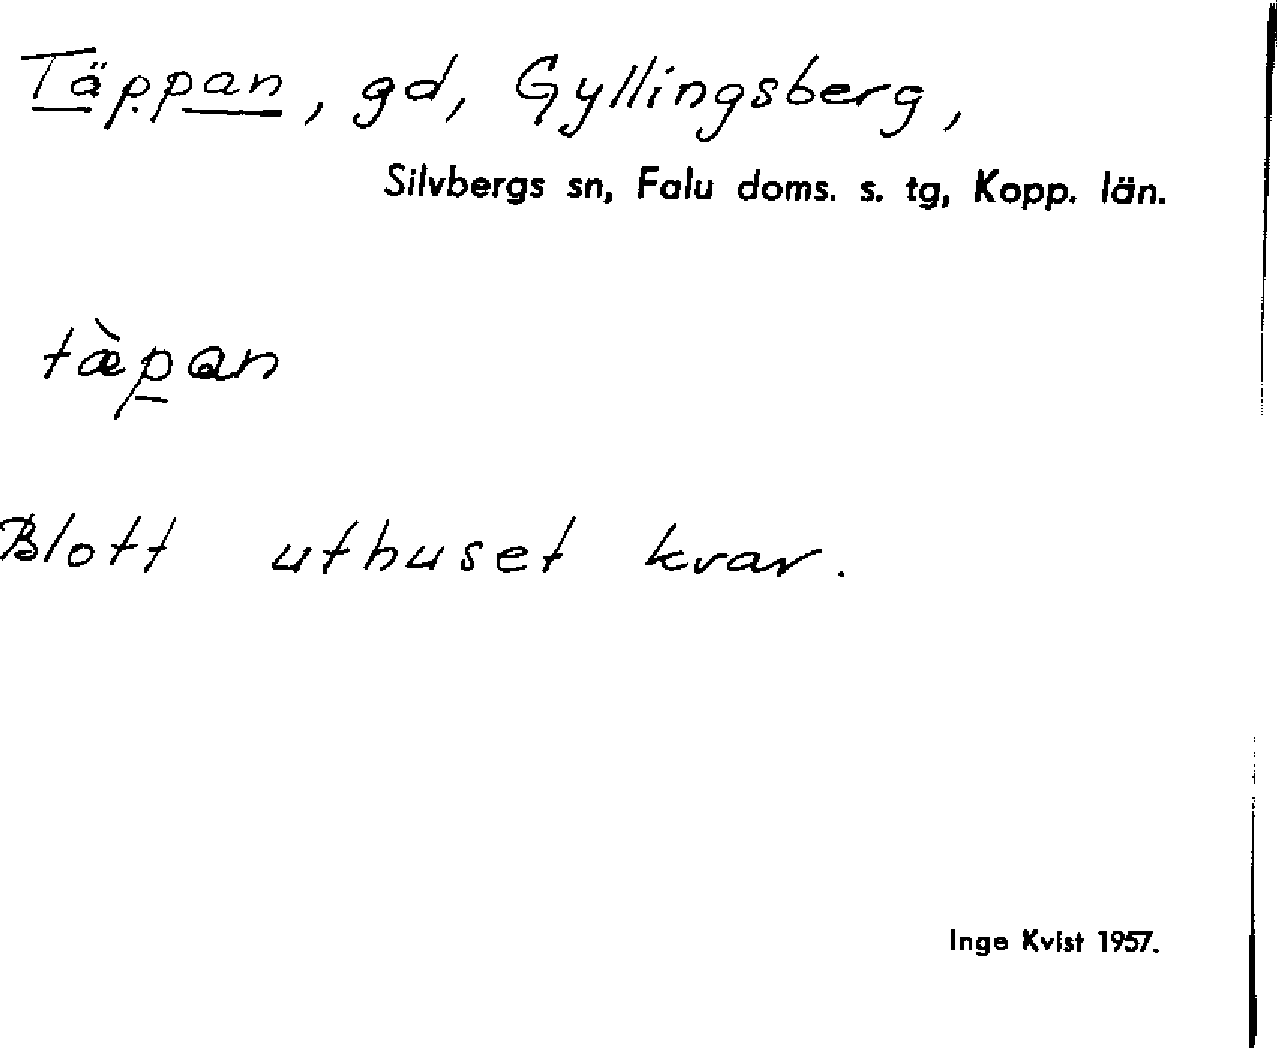 Täppan, gd, Gyllingsberg,
Silvbergs sn, Falu doms. s. tg, Kopp. län.
tæ̀p̲an
Blott uthuset kvar.
Inge Kvist 1957.